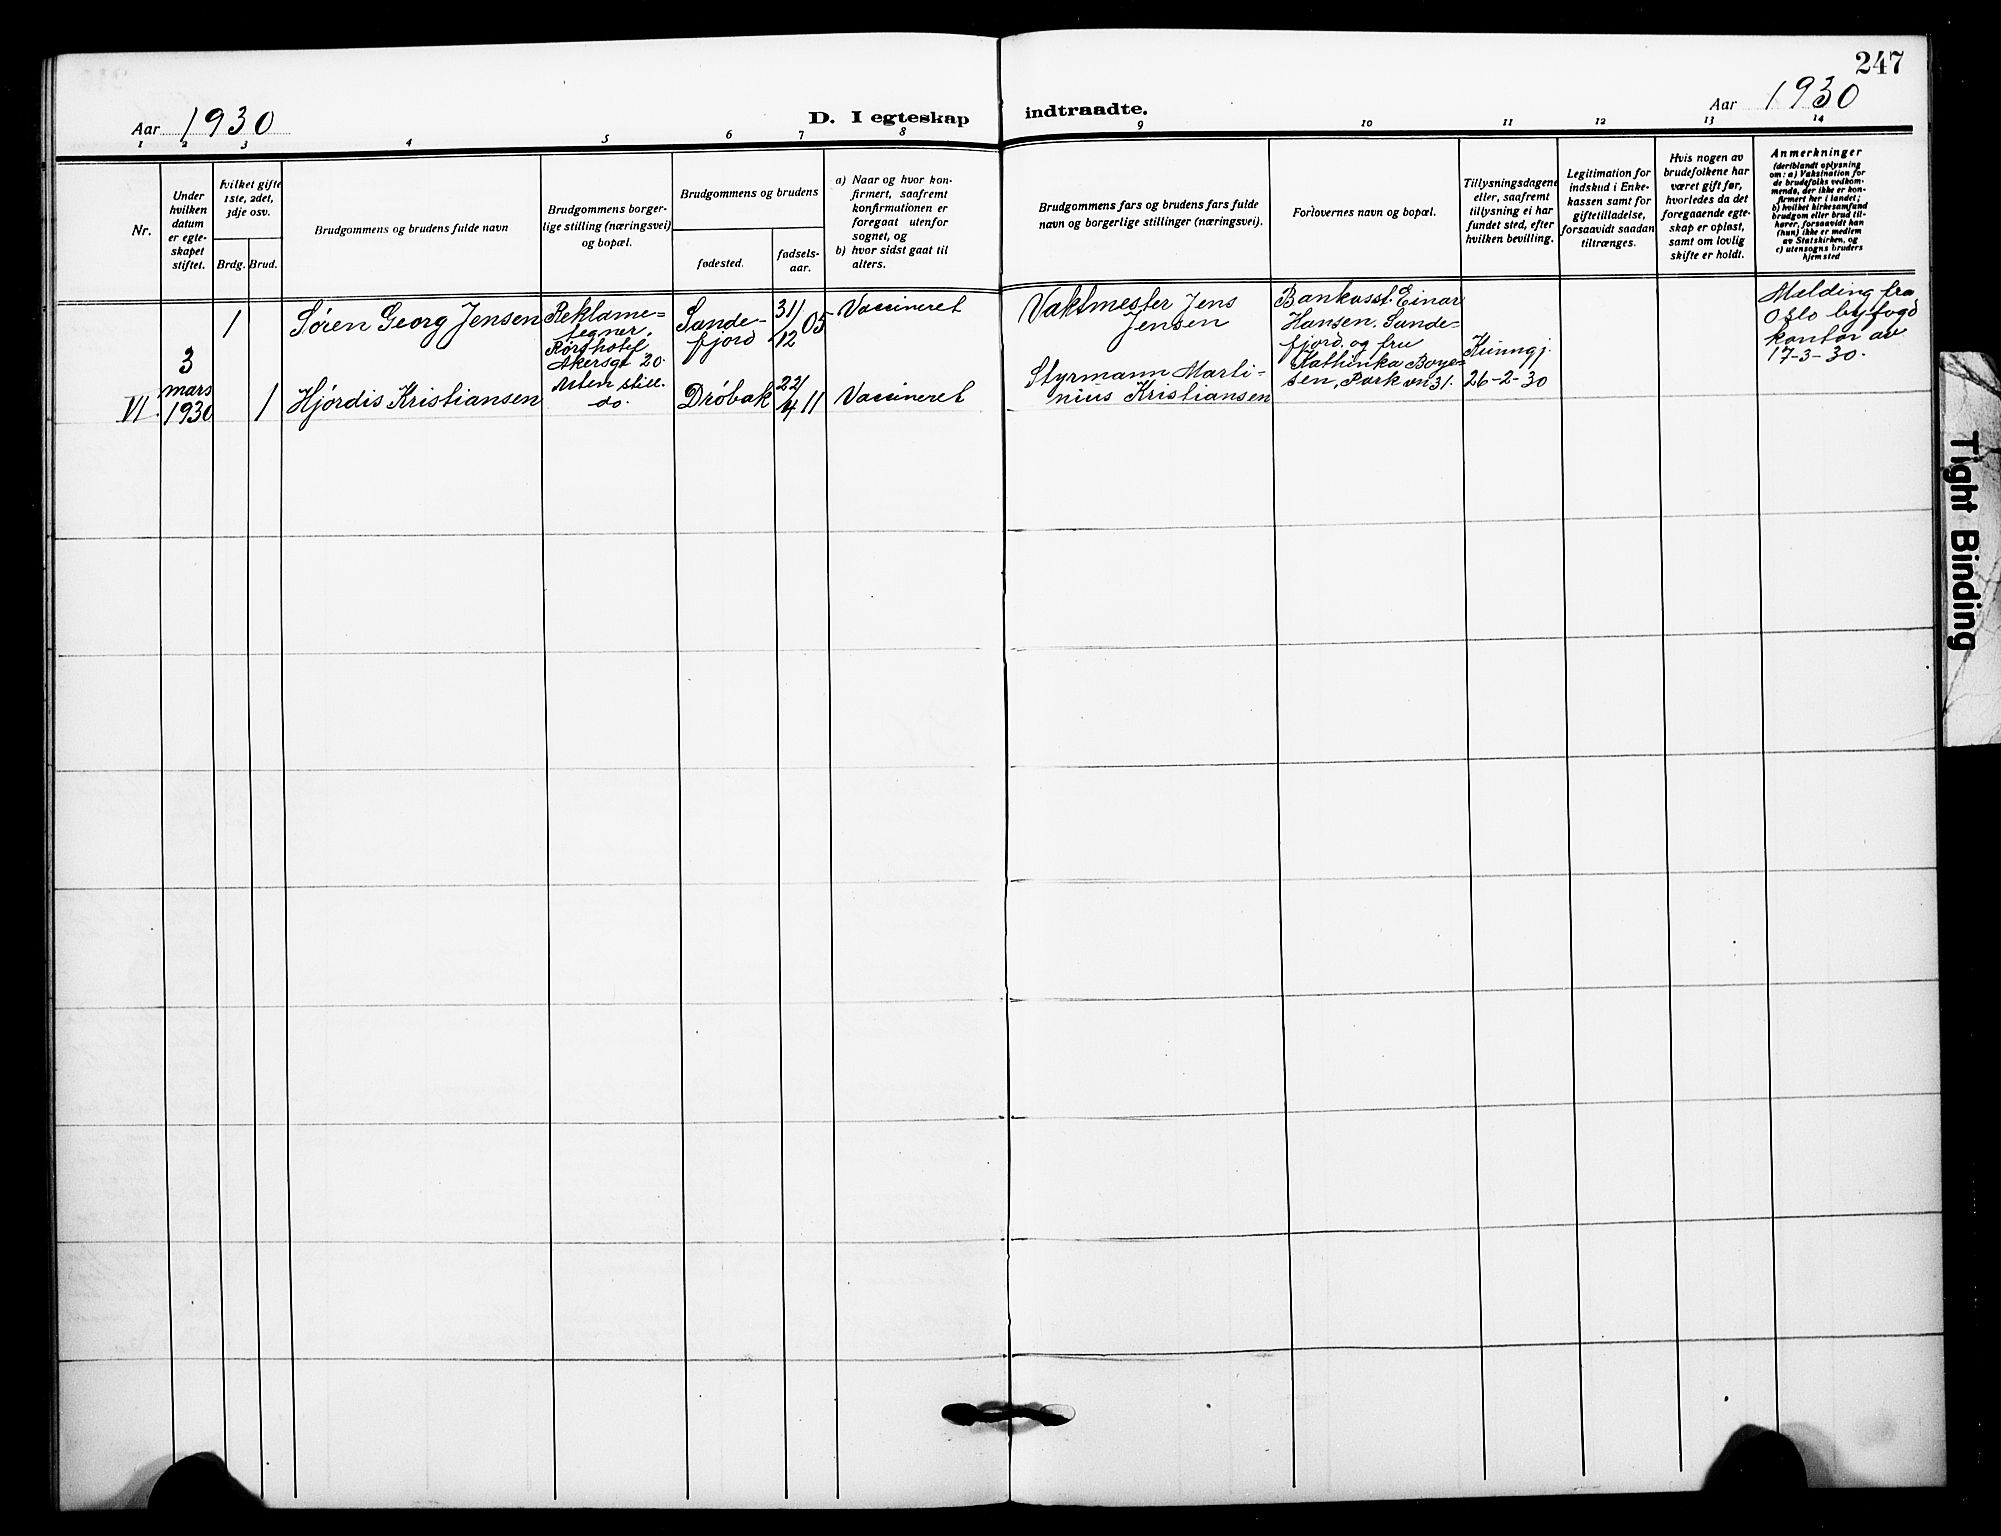 247
Aar 1930
D. I egteskap indtraadte.
Aar 1930
1 2 3 4 5 6 7 8 9 10 11 12 13 14
Nr.
Under
hvilken
datum
er egte-
skapet
stiftet.
hvilket gifte
1ste, 2det,
3dje osv.
Brdg. Brud.
Brudgommens og brudens fulde navn
Brudgommens borger-
lige stilling (næringsvei)
og bopæl.
Brudgommens og brudens
fødested.
fødsels-
aar.
a) Naar og hvor kon-
firmert, saafremt
konfirmationen er
foregaat utenfor
sognet, og
b) hvor sidst gaat til
alters.
Brudgommens fars og brudens fars fulde
navn og borgerlige stillinger (næringsvei).
Forlovernes navn og bopæl.
Tillysningsdagene
eller, saafremt
tillysning ei har
fundet sted, efter
hvilken bevilling.
Legitimation for
indskud i Enke-
kassen samt for
giftetilladelse,
forsaavidt saadan
tiltrænges.
Hvis nogen av
brudefolkene har
været gift før,
hvorledes da det
foregaaende egte-
skap er opløst,
samt om lovlig
skifte er holdt.
Anmerkninger
(deriblandt oplysning
om: a) Vaksination for
de brudefolks vedkom-
mende, der ikke er kon-
firmert her i landet;
b) hvilket kirkesamfund
brudgom eller brud til-
hører, forsaavidt han
(hun) ikke er medlem
av Statskirken, og
c) utensogns bruders
hjemsted
VI.
3
mars
1930
1
Søren Georg Jensen
Reklame-
tegner,
hotel
Akersgt 20.
Sande-
fjord
31/12 05
Vaccineret
Vaktmester Jens
Jensen
Bankasst. Einar
Hansen. Sande-
fjord. og fru
Kathinka Boye-
sen, Parkvn 31.
Kunngj.
26-2-30
Melding fra
Oslo byfogd
kontor av
17-3-30.
1
Hjørdis Kristiansen
Uten still.
do.
Drøbak
22/4 11
Vaccineret
Styrmann Marti-
nius Kristiansen
Tight Binding